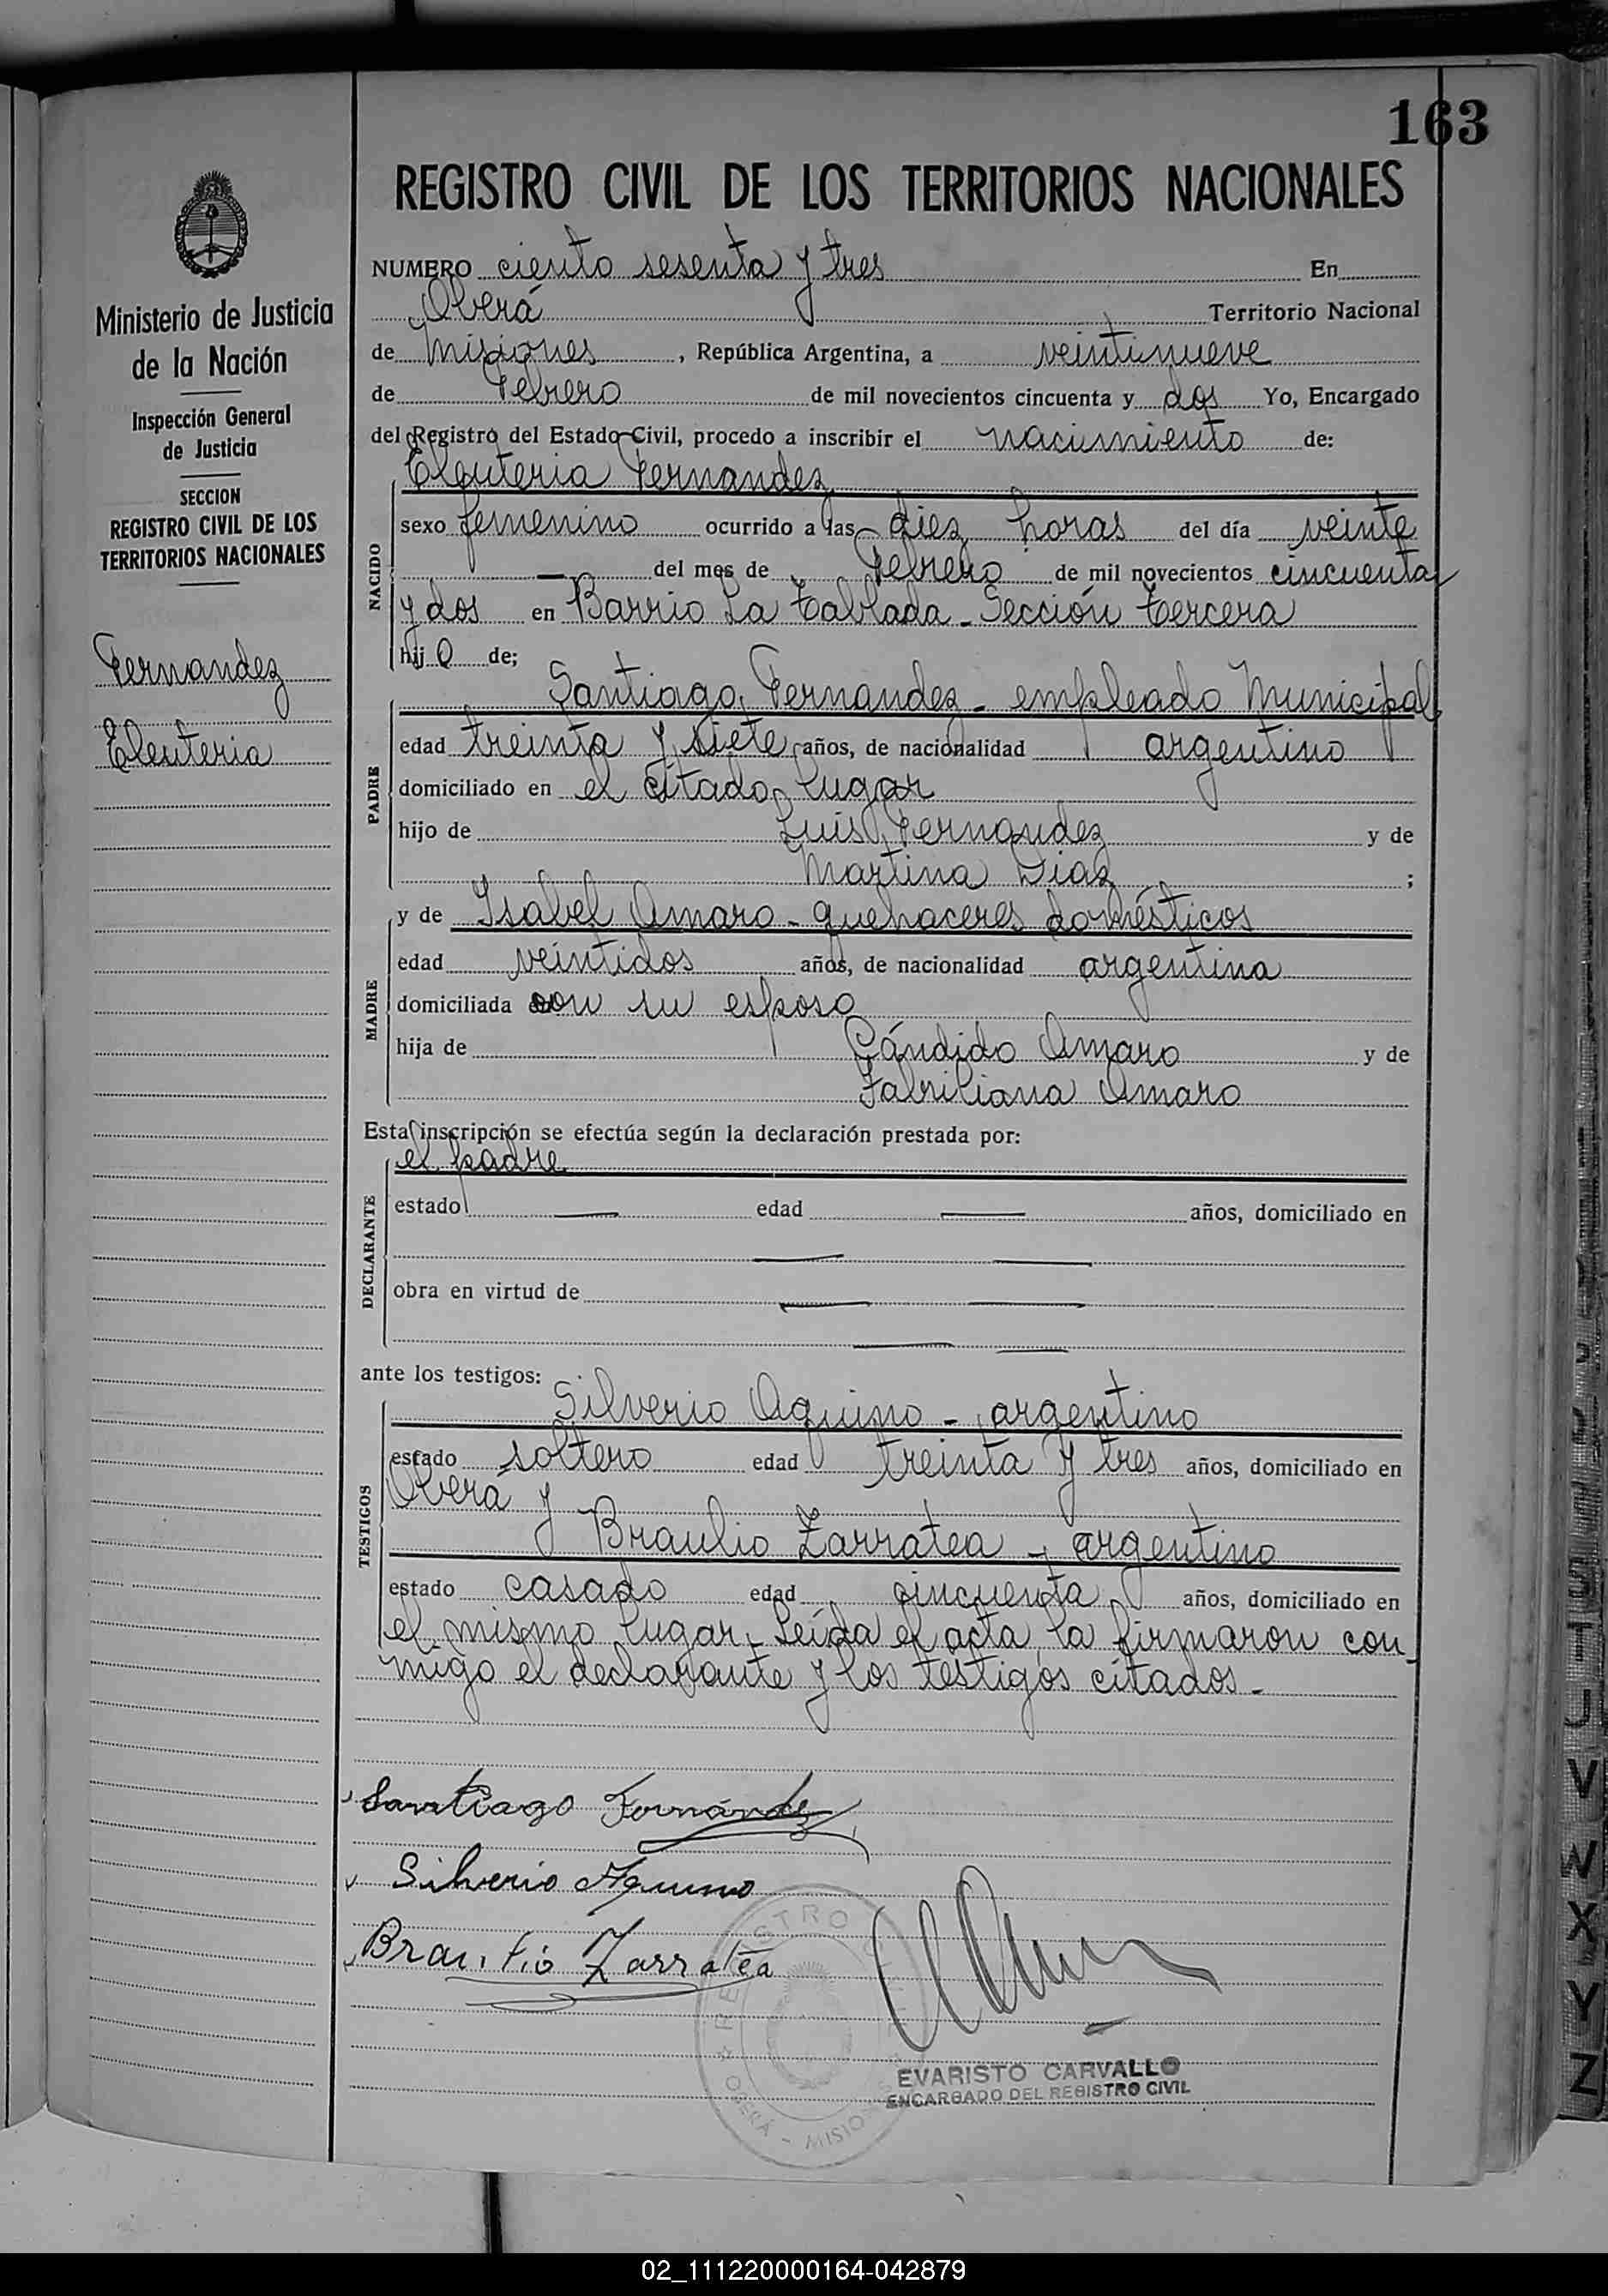 163
REGISTRO CIVIL DE LOS TERRITORIOS NACIONALES
Ministerio de Justicia
de la Nación
Inspección General
de Justicia
SECCION
REGISTRO CIVIL DE LOS
TERRITORIOS NACIONALES
Fernandez
Eleuteria
NUMERO ciento sesenta y tres En
Oberá Territorio Nacional
de Misiones, República Argentina, a veintinueve
de Febrero de mil novecientos cincuenta y dos Yo, Encargado
del Registro del Estado Civil, procedo a inscribir el nacimiento de:
Eleuteria Fernandez
NACIDO
sexo femenino ocurrido a las diez horas del día veinte
— del mes de Febrero de mil novecientos cincuenta
y dos en Barrio La Tablada - Sección tercera
hij a de;
Santiago Fernandez - empleado Municipal
PADRE
edad treinta y siete años, de nacionalidad argentino
domiciliado en el citado lugar
hijo de Luis Fernandez y de
Martina Diaz ;
y de Isabel Amaro - quehaceres domésticos
MADRE
edad veintidos años, de nacionalidad argentina
domiciliada con su esposo
hija de Cándido Amaro y de
Fabriliana Amaro
Esta inscripción se efectúa según la declaración prestada por:
el padre
DECLARANTE
estado — edad — años, domiciliado en
— —
obra en virtud de — —
— —
ante los testigos:
Silverio Aquino - argentino
TESTIGOS
estado soltero edad treinta y tres años, domiciliado en
Oberá y
Braulio Zarratea - argentino
estado casado edad cincuenta años, domiciliado en
el mismo lugar. Leída el acta la firmaron con
migo el declarante y los testigos citados -
Santiago Fernández
Silverio Aquino
Braulio Zarratea
REGISTRO CIVIL
OBERÁ - MISIONES
EVARISTO CARVALLO
ENCARGADO DEL REGISTRO CIVIL
T
U
V
W
X
Y
Z
02_111220000164-042879